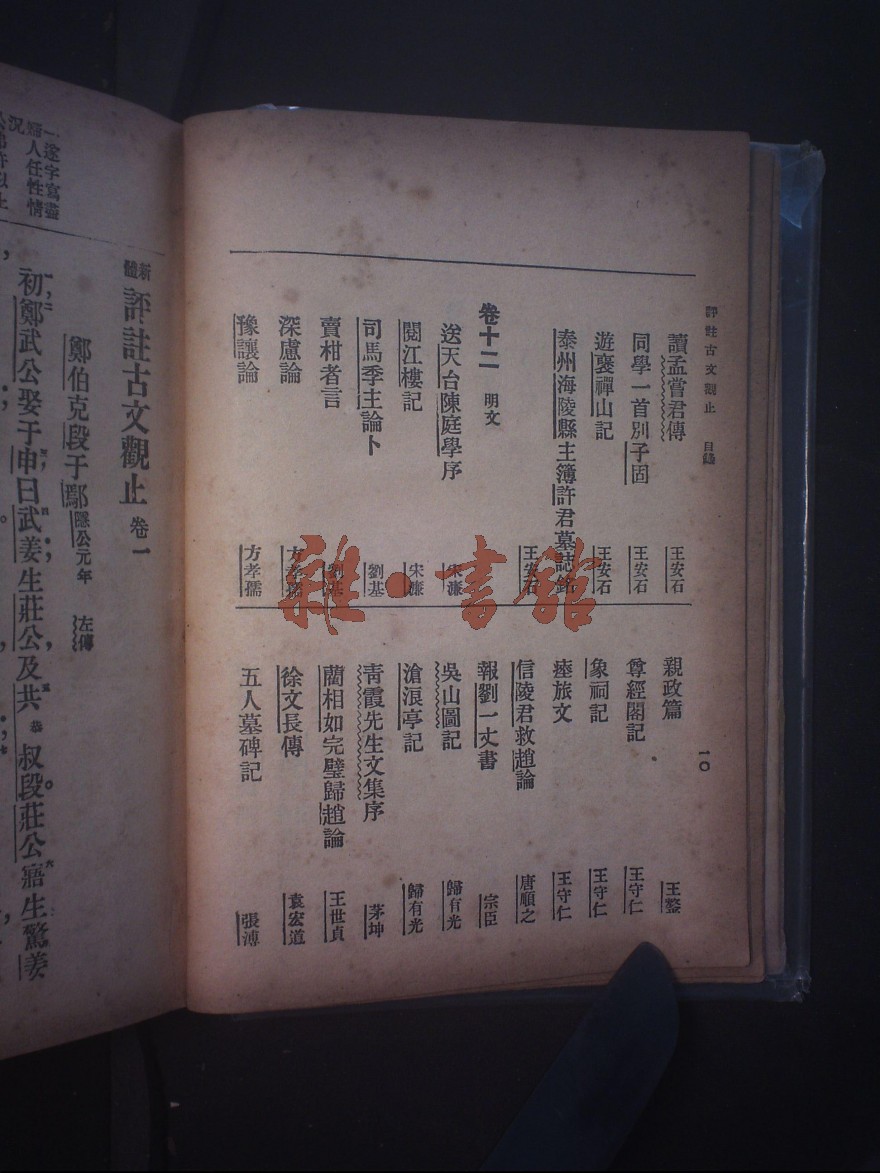 評註古文觀止 目錄
一〇
讀孟嘗君傳 王安石
同學一首別子固 王安石
遊褒禪山記 王安石
泰州海陵縣主簿許君墓誌銘 王安石
卷十二 明文
送天台陳庭學序 宋濂
閱江樓記 宋濂
司馬季主論卜 劉基
賣柑者言 劉基
深慮論 方孝孺
豫讓論 方孝孺
親政篇 王鏊
尊經閣記 王守仁
象祠記 王守仁
瘞旅文 王守仁
信陵君救趙論 唐順之
報劉一丈書 宗臣
吳山圖記 歸有光
滄浪亭記 歸有光
青霞先生文集序 茅坤
藺相如完璧歸趙論 王世貞
徐文長傳 袁宏道
五人墓碑記 張溥
雜·書館
一遂字寫盡
婦人任性情
況
新體 評註古文觀止 卷一
鄭伯克段于鄢 隱公元年 左傳
初鄭武公娶于申曰武姜生莊公及共 恭 叔段莊公寤生驚姜